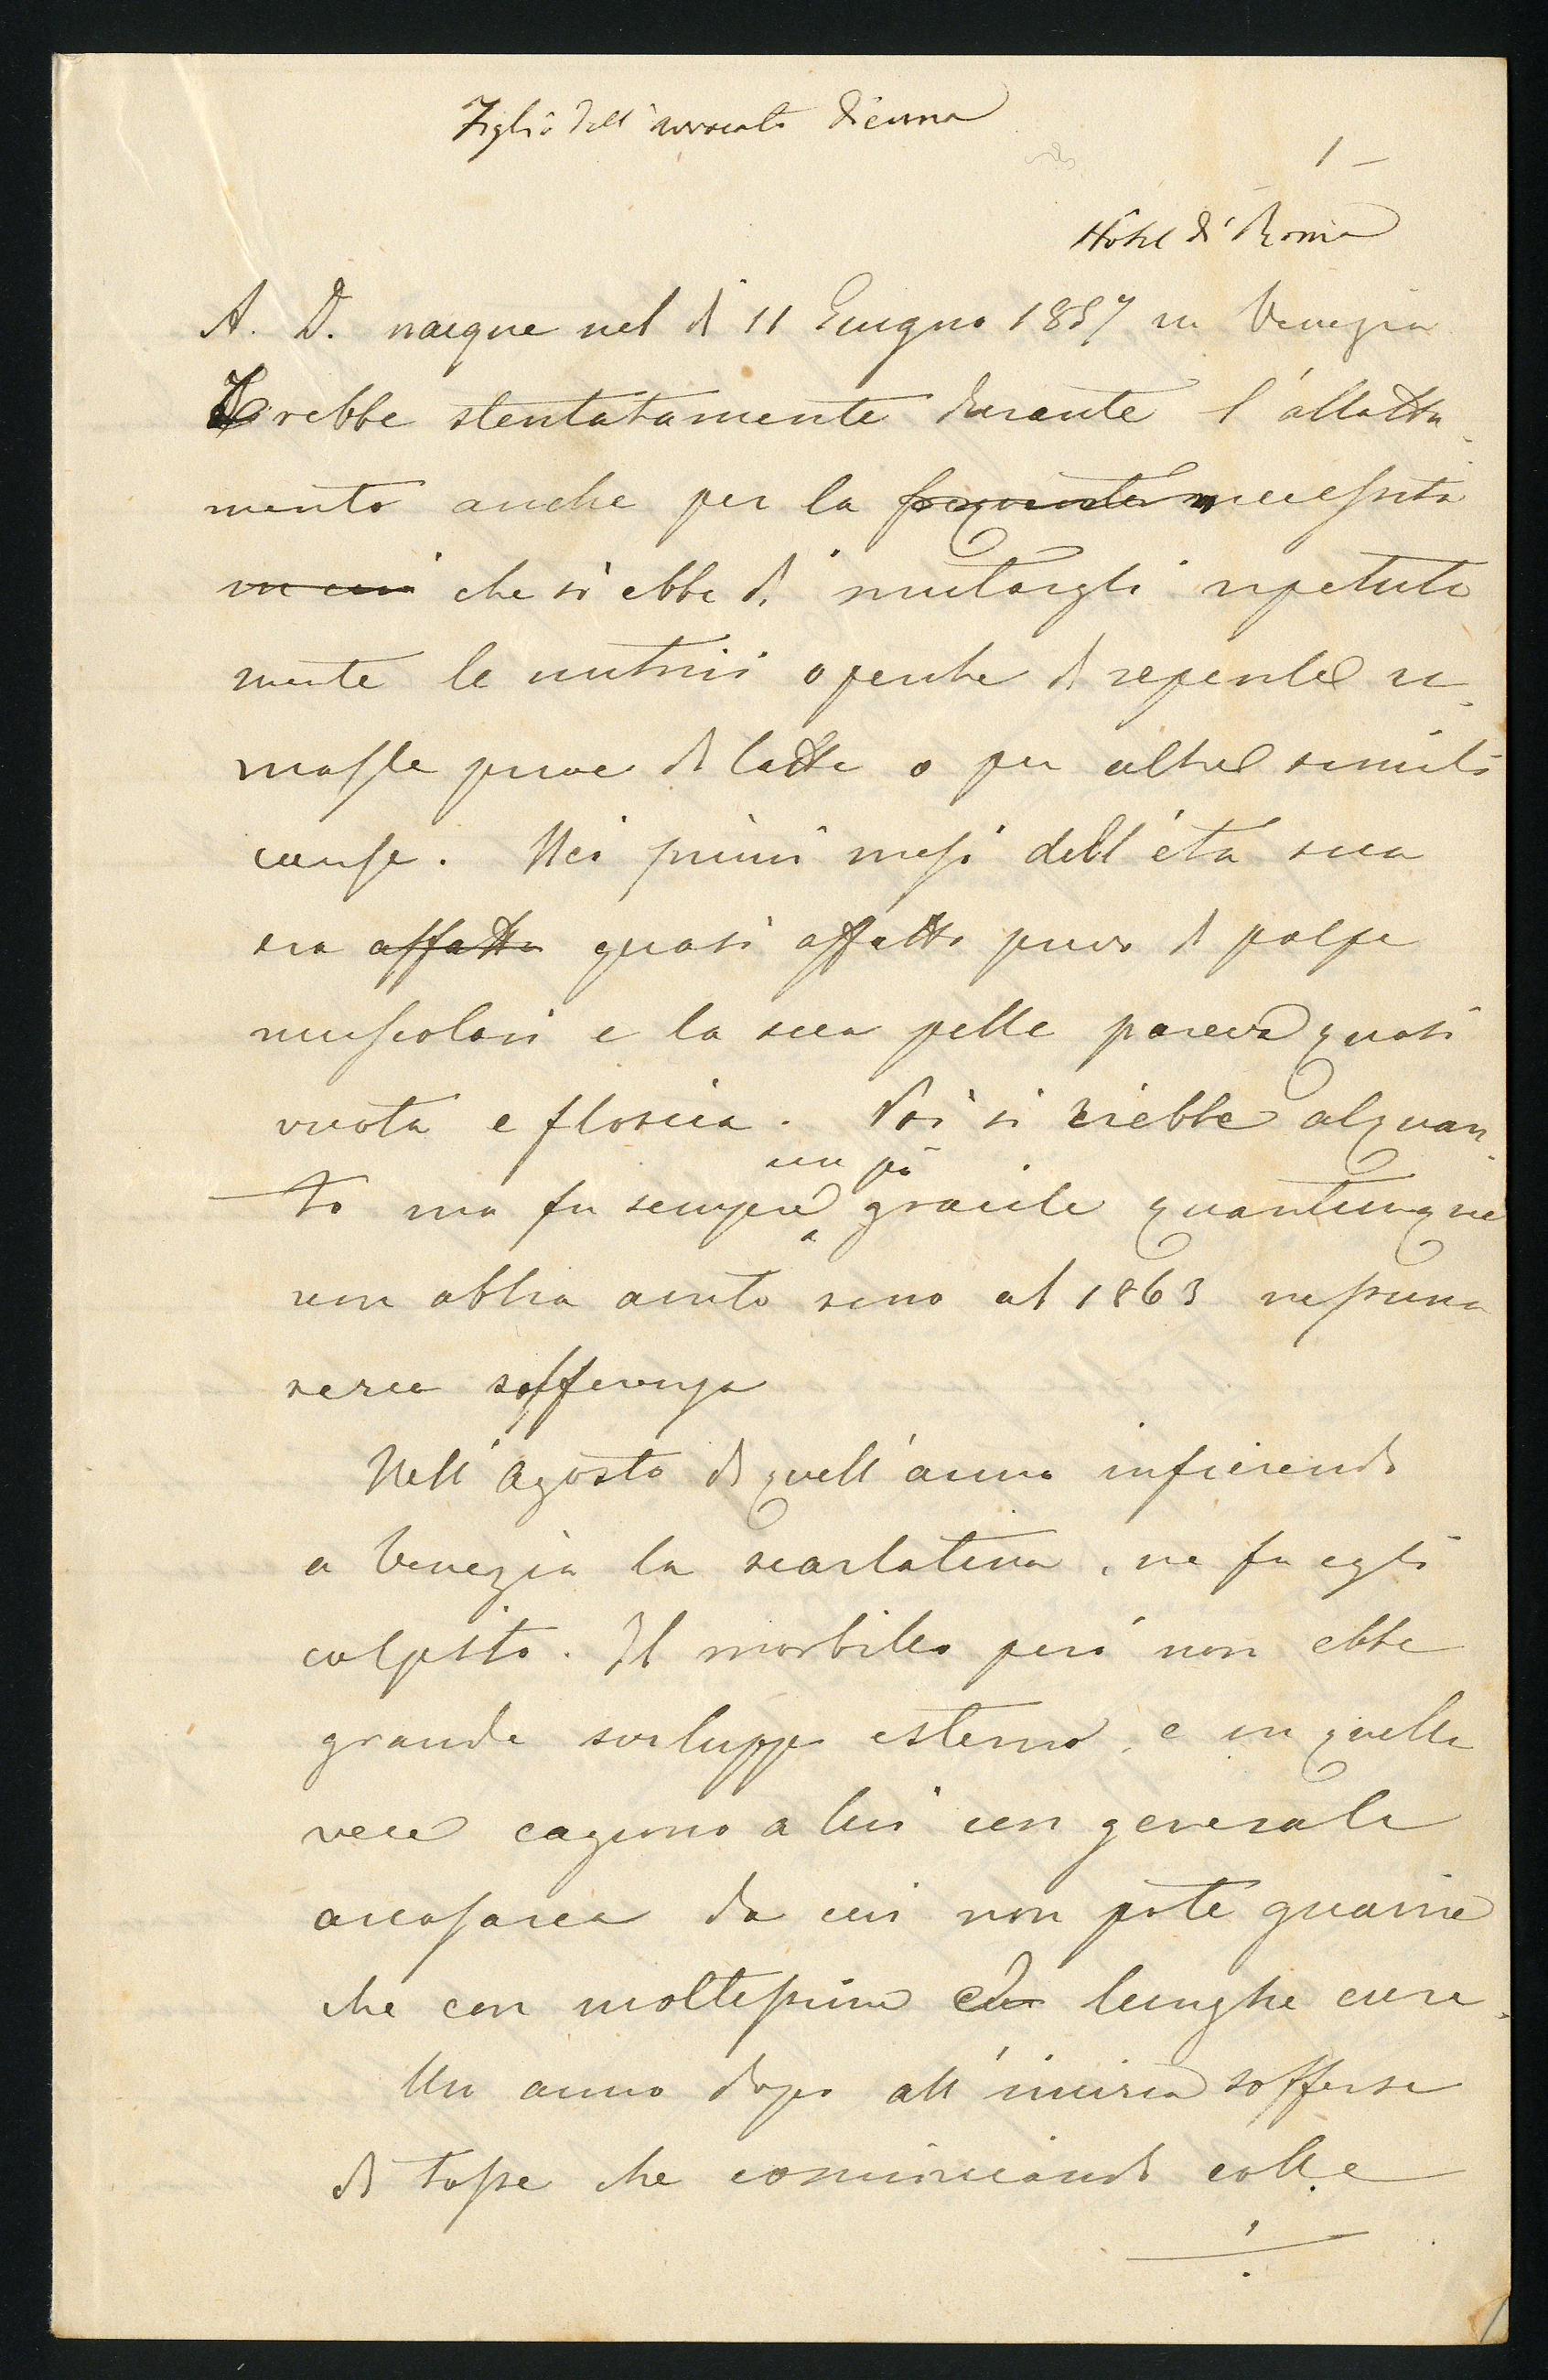 Figlio dell'avvocato Diena
1 –
Hôtel di Roma
A. D. nacque nel dì 11 Giugno 1857 in Venezia
Crebbe stentatamente durante l'allatta-
mento anche per la frequente necessità
in cui che si ebbe di mutargli ripetuta
mente le nutrici o perche di repente ri-
masse prive di latte o per altre simili
cause. Nei primi mesi dell'età sua
era affatto quasi affatto privo di polpe
muscolari e la sua pelle pareva quasi
vuota e floscia. Poi si riebbe alquan-
to ma fu sempre un pò gracile quantunque
non abbia avuto sino al 1863 nessuna
seria sofferenza
Nell'Agosto di quell'anno infierendo
a Venezia la scarlatina, ne fu egli
colpito. Il morbillo però non ebbe
grande sviluppo esterno, e in quella
vece cagionò a lui un generale
anasarca da cui non potè guarire
che con moltessime lunghe cure.
Un anno dopo all'incirca sofferse
di tosse che cominciando colle